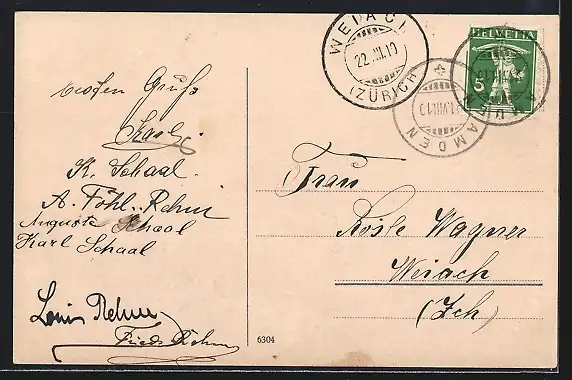 Gruss
Karl
K. Schaal.
A. Föhl. Rehm
Auguste Schaal
Karl Schaal
Louis Rehm
Fried. Rehm
6304
WEIACH
22.VIII.10
(ZÜRICH)
AMDEN
VIII.10
HELVETIA
5
Frau
Rösle Wagner
Weiach
(Zch)